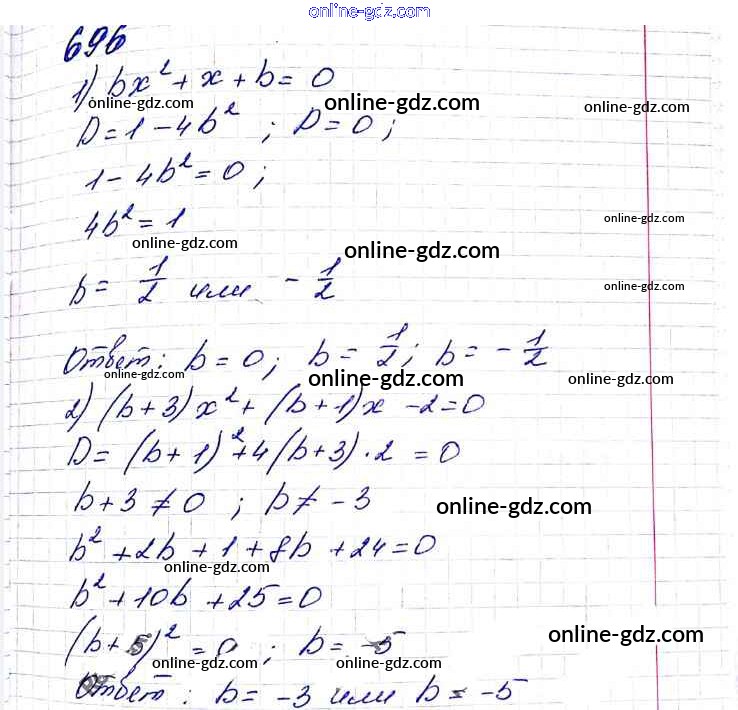 online-gdz.com
696
1) bx² + x + b = 0
online-gdz.com online-gdz.com online-gdz.com
D = 1 - 4b² ; D = 0 ;
1 - 4b² = 0 ;
4b² = 1
online-gdz.com
online-gdz.com online-gdz.com
b = 1/2 или - 1/2
online-gdz.com
Ответ: b = 0; b = 1/2; b = - 1/2
online-gdz.com online-gdz.com online-gdz.com
2) (b+3)x² + (b+1)x - 2 = 0
D = (b+1)² + 4(b+3)·2 = 0
b+3 ≠ 0 ; b ≠ -3
online-gdz.com
b² + 2b + 1 + 8b + 24 = 0
online-gdz.com
b² + 10b + 25 = 0
online-gdz.com
(b+5)² = 0 ; b = -5
online-gdz.com online-gdz.com
Ответ: b = -3 или b = -5
online-gdz.com online-gdz.com